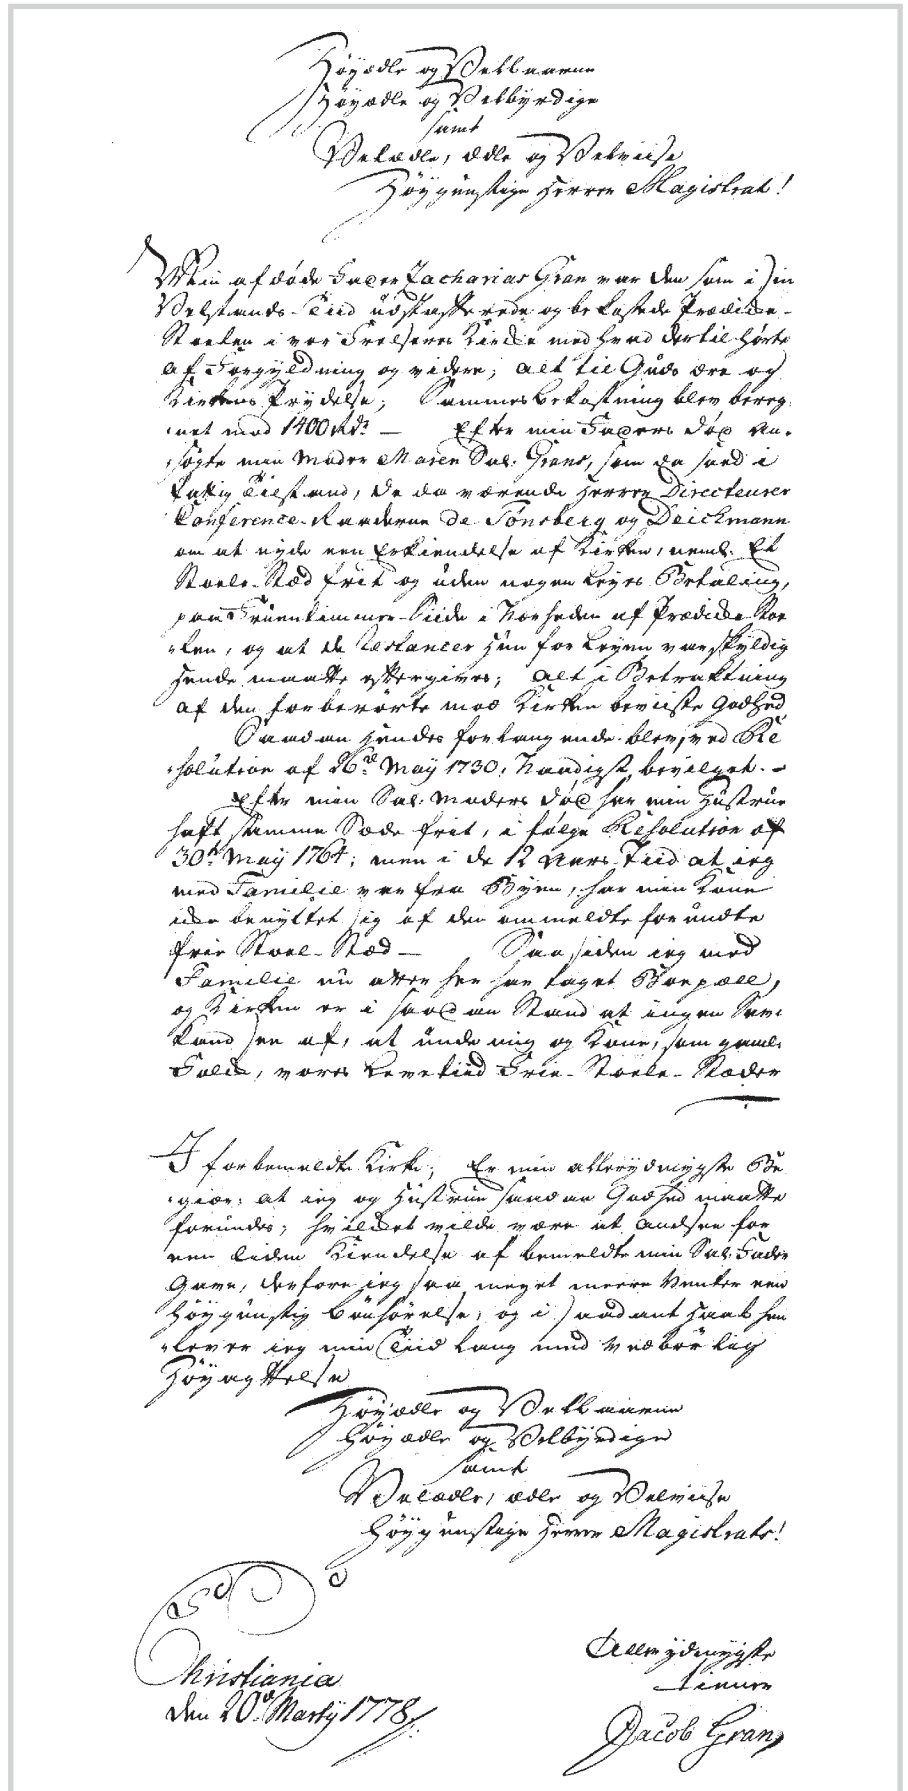 Høyædle og Velbaarne
Høyædle og Velbÿrdige
samt
Velædle, ædle og Velviise
Høÿgünstige Herrer Magistrat!
Min afdøde Fader Zacharias Gran var den som i Sin
Velstands-Tiid üdstafferede og bekostede Prædicke-
Stoelen i vor Frelseres Kircke med hvad dertil hörte
af Forgyldning og videre; alt til Guds ære og
Kirkens Prydelse; Sammes bekostning blev bereg-
-net med 1400 Rdr. — Efter min Faders død an-
-søgte min Moder Maren Sal: Grans, som da sad i
fattig Tilstand, de da værende Herrer Directeurer
Conference-Raaderne de Tonsberg og Deichmann
om at nyde een Erkiendelse af Kirken, neml: Et
Stoele-Stæd frit og uden nogen Leyes Betaling,
paa Fruentimmer-Siide i Nærheden af Prædicke Stoe
-len, og at de Restancer hun for Leyen var skyldig
hende maatte eftergives; alt i Betragtning
af den forberörte mod Kirken beviiste Godhed
Saadan hendes forlangende blev, ved Re
-solution af 26de May 1730, Naadigst bevilget. —
Efter min Sal: Moders død har min Hustrue
haft samme Sæde frit, i følge Resolution af
30te May 1764; men i de 12 Aars Tiid at ieg
med Familie var fra Byen, har min Kone
icke benyttet sig af den ommeldte forundte
frie Stoel-Stæd — Saasiden ieg med
Familie nu atter her har taget Boepæll,
og Kirken er i saadan Stand at ingen Savn
kand see af, at unde mig og Kone, som gamle
Folck, vores Levetiid Frie-Stoele-Stæder
I forbemeldte Kirke; Er min allerydmygste Be
-giær: at ieg og Hustrue saadan Godhed maatte
forundes; hvilcket vilde være at andsee for
een liden Kiendelse af bemeldte min Sal: Faders
Gave, derfore jeg saa meget meere venter een
Høygünstig Bönhørelse; og i Saadant Haab hen
-lever ieg min Tiid lang med vedbörlig
Høyagttelse
Høyædle og Velbaarne
Høyædle og Velbÿrdige
samt
Velædle, ædle og Velviise
Høygünstige Herrer Magistrats!
Christiania
den 20de Martÿ 1778
Allerydmygste
tiener
Jacob Gran